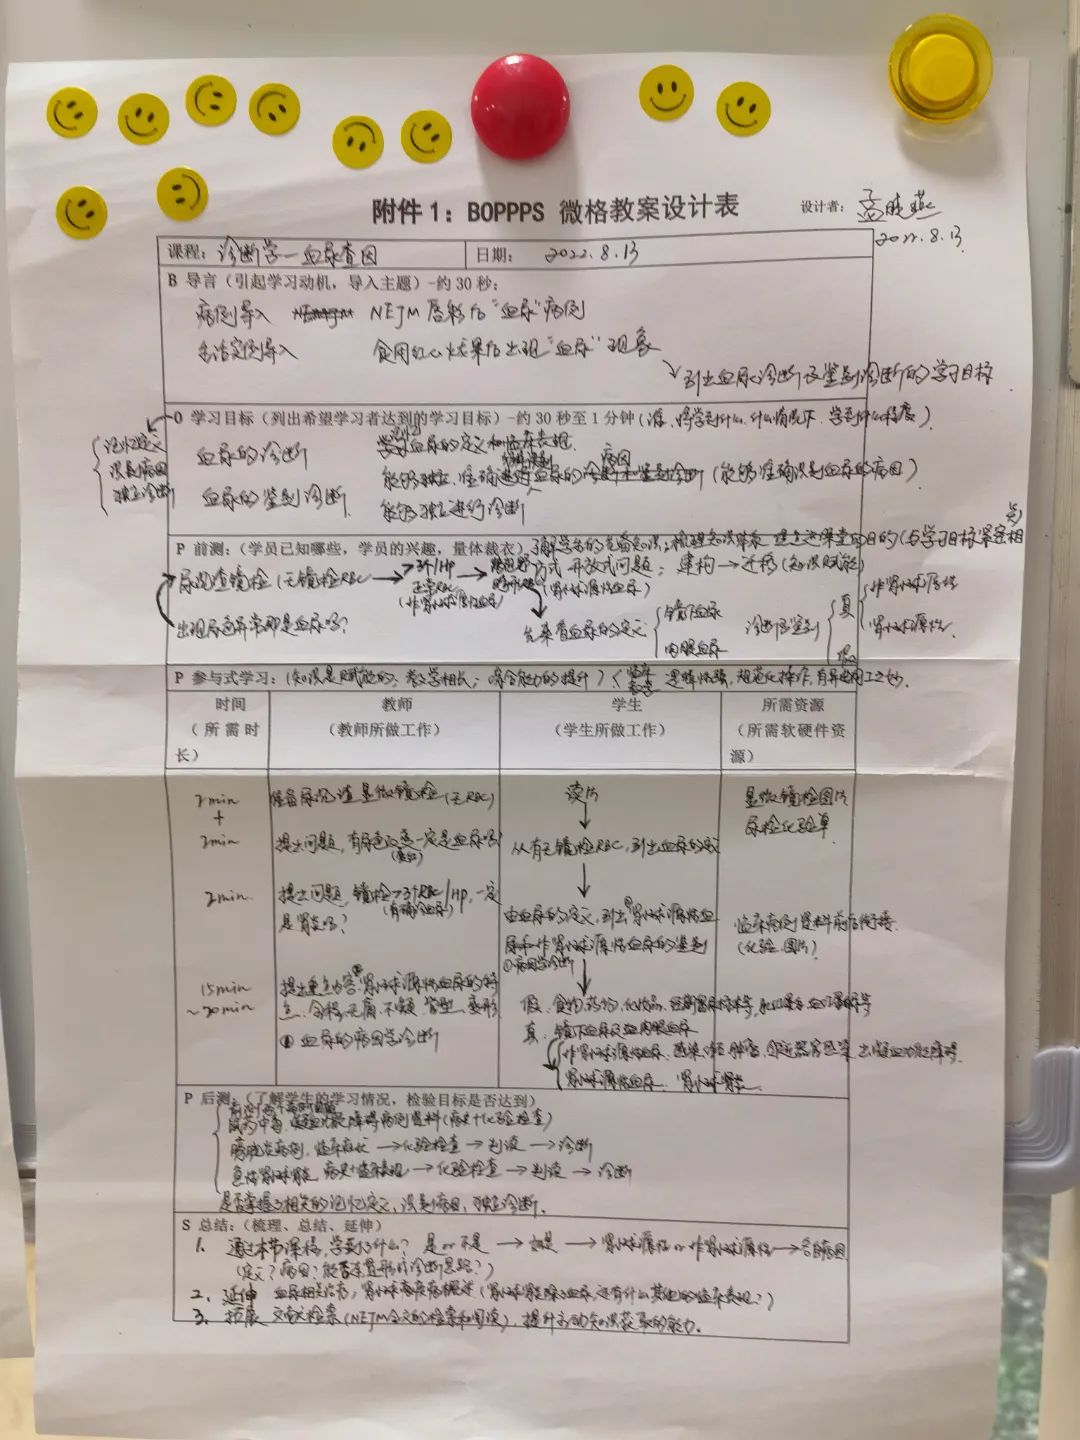 附件1：BOPPPS 微格教案设计表
设计者：孟晓燕
2022.8.13
课程：诊断学—血尿查因
日期： 2022.8.13
B 导言（引起学习动机，导入主题）-约30秒：
病例导入 NEJM 后“血尿”病例
生活实例导入 食用红心火龙果后出现“血尿”现象
引出血尿诊断及鉴别诊断的学习目标
O 学习目标（列出希望学习者达到的学习目标）-约30秒至1分钟（谁、将学到什么、什么情况下、学到什么程度）
记忆定义
识别病因
独立诊断
血尿的诊断 血尿的定义和临床表现
能够独立、准确进行血尿的诊断和鉴别诊断（能够准确识别血尿的病因）
病因
血尿的鉴别诊断 能够独立进行诊断
P 前测：（学员已知哪些，学员的兴趣，量体裁衣）了解学员的先备知识，梳理知识体系 的目的（与学习目标紧密相
方式 开放式问题；建构→迁移（知识赋能）
尿沉渣镜检（无镜检RBC
>3个/HP
（非肾小球源性血尿）
（肾小球源性血尿）
出现尿色异常即是血尿吗？
先来看血尿的定义
镜下血尿
肉眼血尿
诊断鉴别
真
假
非肾小球源性
肾小球源性
P 参与式学习：（知识是赋能的；教学相长；综合能力的提升）
临床
教学
逻辑性强，规范化操作，有异曲同工之妙.
时间 教师 学生 所需资源
（所需时长） （教师所做工作） （学生所做工作） （所需软硬件资源）
2min 准备尿沉渣显微镜检（无RBC） 读片 显微镜检图片
+ 尿检化验单
2min 提出问题，有尿色改变一定是血尿吗？ 从有无镜检RBC，引出血尿的定义
2min 提出问题，镜检>3个RBC/HP，一定
是肾炎吗？
由血尿的定义，引出肾小球源性血
尿和非肾小球源性血尿的鉴别
①病因学诊断
临床病例资料前后衔接
（化验、图片）
15min
~20min
提出重点内容 肾小球源性血尿的特
点、全程、无痛、不凝、管型、变形
② 血尿的病因学诊断
假、食物、药物、化妆品、
真、镜下血尿及血肉眼血尿
非肾小球源性血尿：感染、肿瘤、邻近器官感染、出凝血功能障碍
肾小球源性血尿：肾小球肾炎
P 后测：（了解学生的学习情况，检验目标是否达到）
鼠药中毒，凝血功能障碍病例资料（病史+化验检查）
膀胱炎病例，临床症状→化验检查→判读→诊断
急性肾小球肾炎 病史+临床表现→化验检查→判读→诊断
是否掌握了相关的记忆定义，识别病因，独立诊断.
S 总结：（梳理、总结、延伸）
1. 通过本节课程，学到了什么？ 是or不是 → 如是 → 肾小球源性or非肾小球源性→各自病因
（定义？病因？能否完整形成诊断思路？）
2. 延伸 血尿相关治疗，肾小球高度病概述（肾小球肾炎除了血尿，还有什么其他的临床表现？）
3. 拓展 文献检索（NEJM全文的检索和阅读），提升主动知识获取的能力.